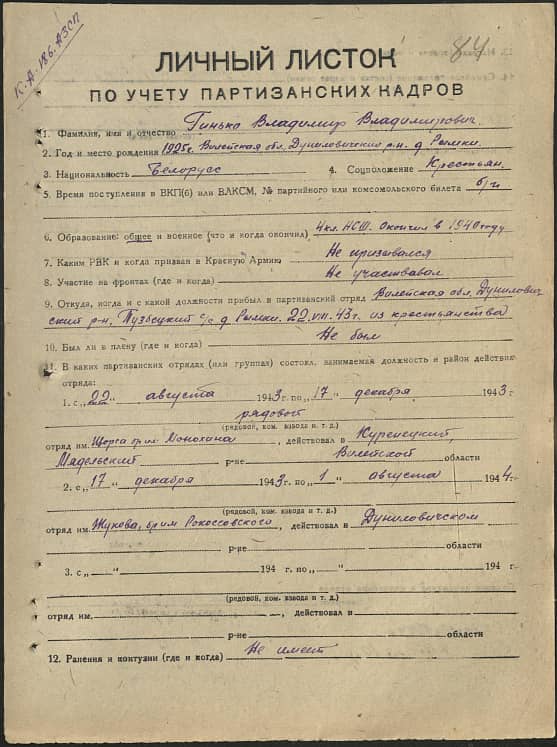 К.А-186.АЗСП
84
ЛИЧНЫЙ ЛИСТОК
ПО УЧЕТУ ПАРТИЗАНСКИХ КАДРОВ
1. Фамилия, имя и отчество Гинько Владимир Владимирович.
2. Год и место рождения 1925г. Вилейская обл. Дуниловичский р-н. д Рымки.
3. Национальность Белорусс 4. Соцположение Крестьян.
5. Время поступления в ВКП(б) или ВЛКСМ, № партийного или комсомольского билета б/п
6. Образование: общее и военное (что и когда окончил) 4 кл. НСШ. Окончил в 1940 году
7. Каким РВК и когда призван в Красную Армию Не призывался
8. Участие на фронтах (где и когда) Не участвовал
9. Откуда, когда и с какой должности прибыл в партизанский отряд Вилейская обл. Дунилович
ский р-н. с/с д Рымки. 22.VIII.43г. из крестьянства
10. Был ли в плену (где и когда) Не был
11. В каких партизанских отрядах (или группах) состоял, занимаемая должность и район действия
отряда:
1. с „22“ августа 1943 г. по „17“ декабря 1943 г
рядовой
(рядовой, ком. взвода и т. д.)
отряд им. Щорса бр им. , действовал в Куренецкий,
Мядельский р-не Вилейской области
2. с „17“ декабря 1943 г. по „1“ августа 1944 г.
(рядовой, ком. взвода и т. д.)
отряд им. Жукова, бр им Рокоссовского, действовал в Дуниловичском
р-не области
3. с „ “ 194 г. по „ “ 194 г
(рядовой, ком. взвода и т. д.)
отряд им. , действовал в
р-не области
12. Ранения и контузии (где и когда) Не имеет